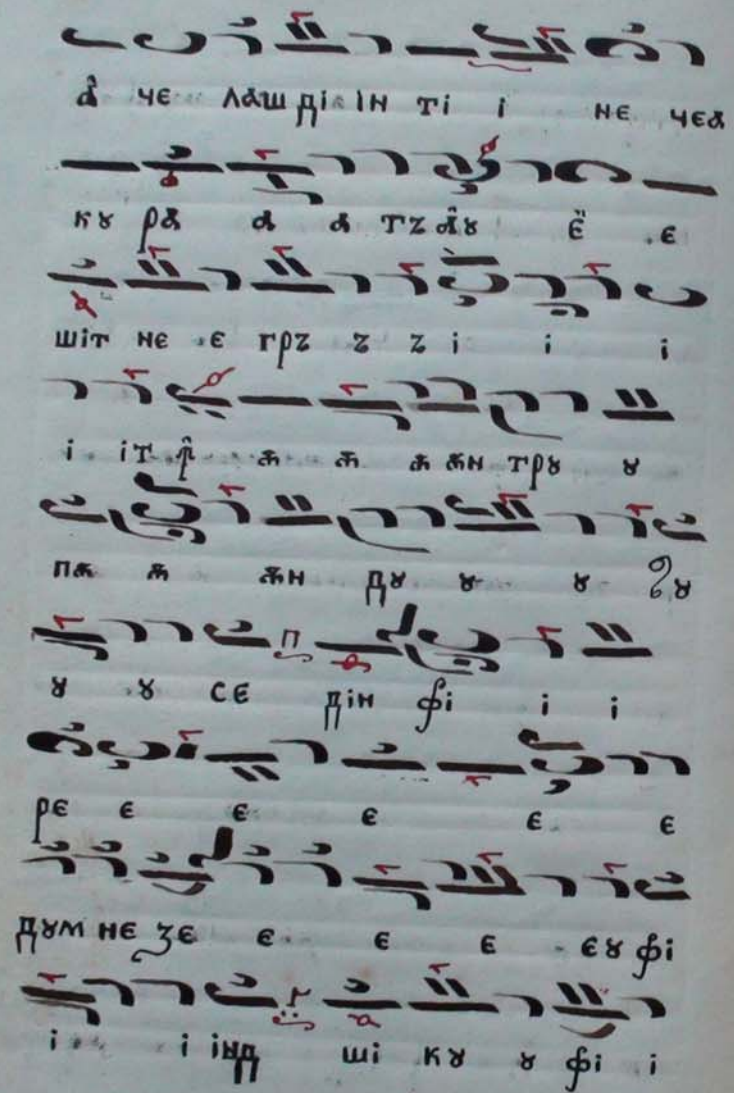 а҆̑ че лаш ді ін ті і не чеа
кꙋ ра а а тz а҆̑ꙋ є҆̈ є
шіт не є грz z z і і і
і іт ꙟ̑ ѫ ѫ ѫ ѫн трꙋ ꙋ
пѫ ѫ ѫн дꙋ ꙋ ꙋ ꙋ
ꙋ ꙋ се дін фі і і
ре є є є є є
дꙋм не зе є є є єꙋ фі
і і інд ші кꙋ ꙋ фі і